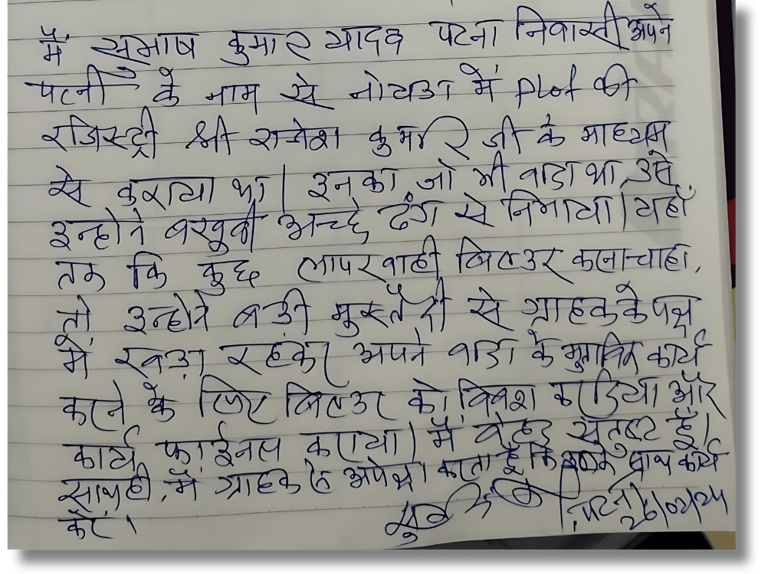 मैं सुभाष कुमार यादव पटना निवासी अपने
पत्नी के नाम से नोयडा में Plot की
रजिस्ट्री श्री राजेश कुमार जी के माध्यम
से कराया था। इनका जो भी वादा था उसे
इन्होने बखुबी अच्छे ढंग से निभाया। यहाँ
तक कि कुछ लापरवाही बिल्डर करना चाहा,
तो इन्होने बड़ी मुस्तैदी से ग्राहक के पक्ष
में खड़ा रहकर अपने वादा के मुताबिक कार्य
करने के लिए बिल्डर को विवश कर दिया और
कार्य फाईनल कराया। मैं बेहद संतुष्ट हूँ।
साथ ही, मैं ग्राहक से अपेक्षा करता हूँ कि इनके साथ कार्य
करें।
पटना
26/02/24